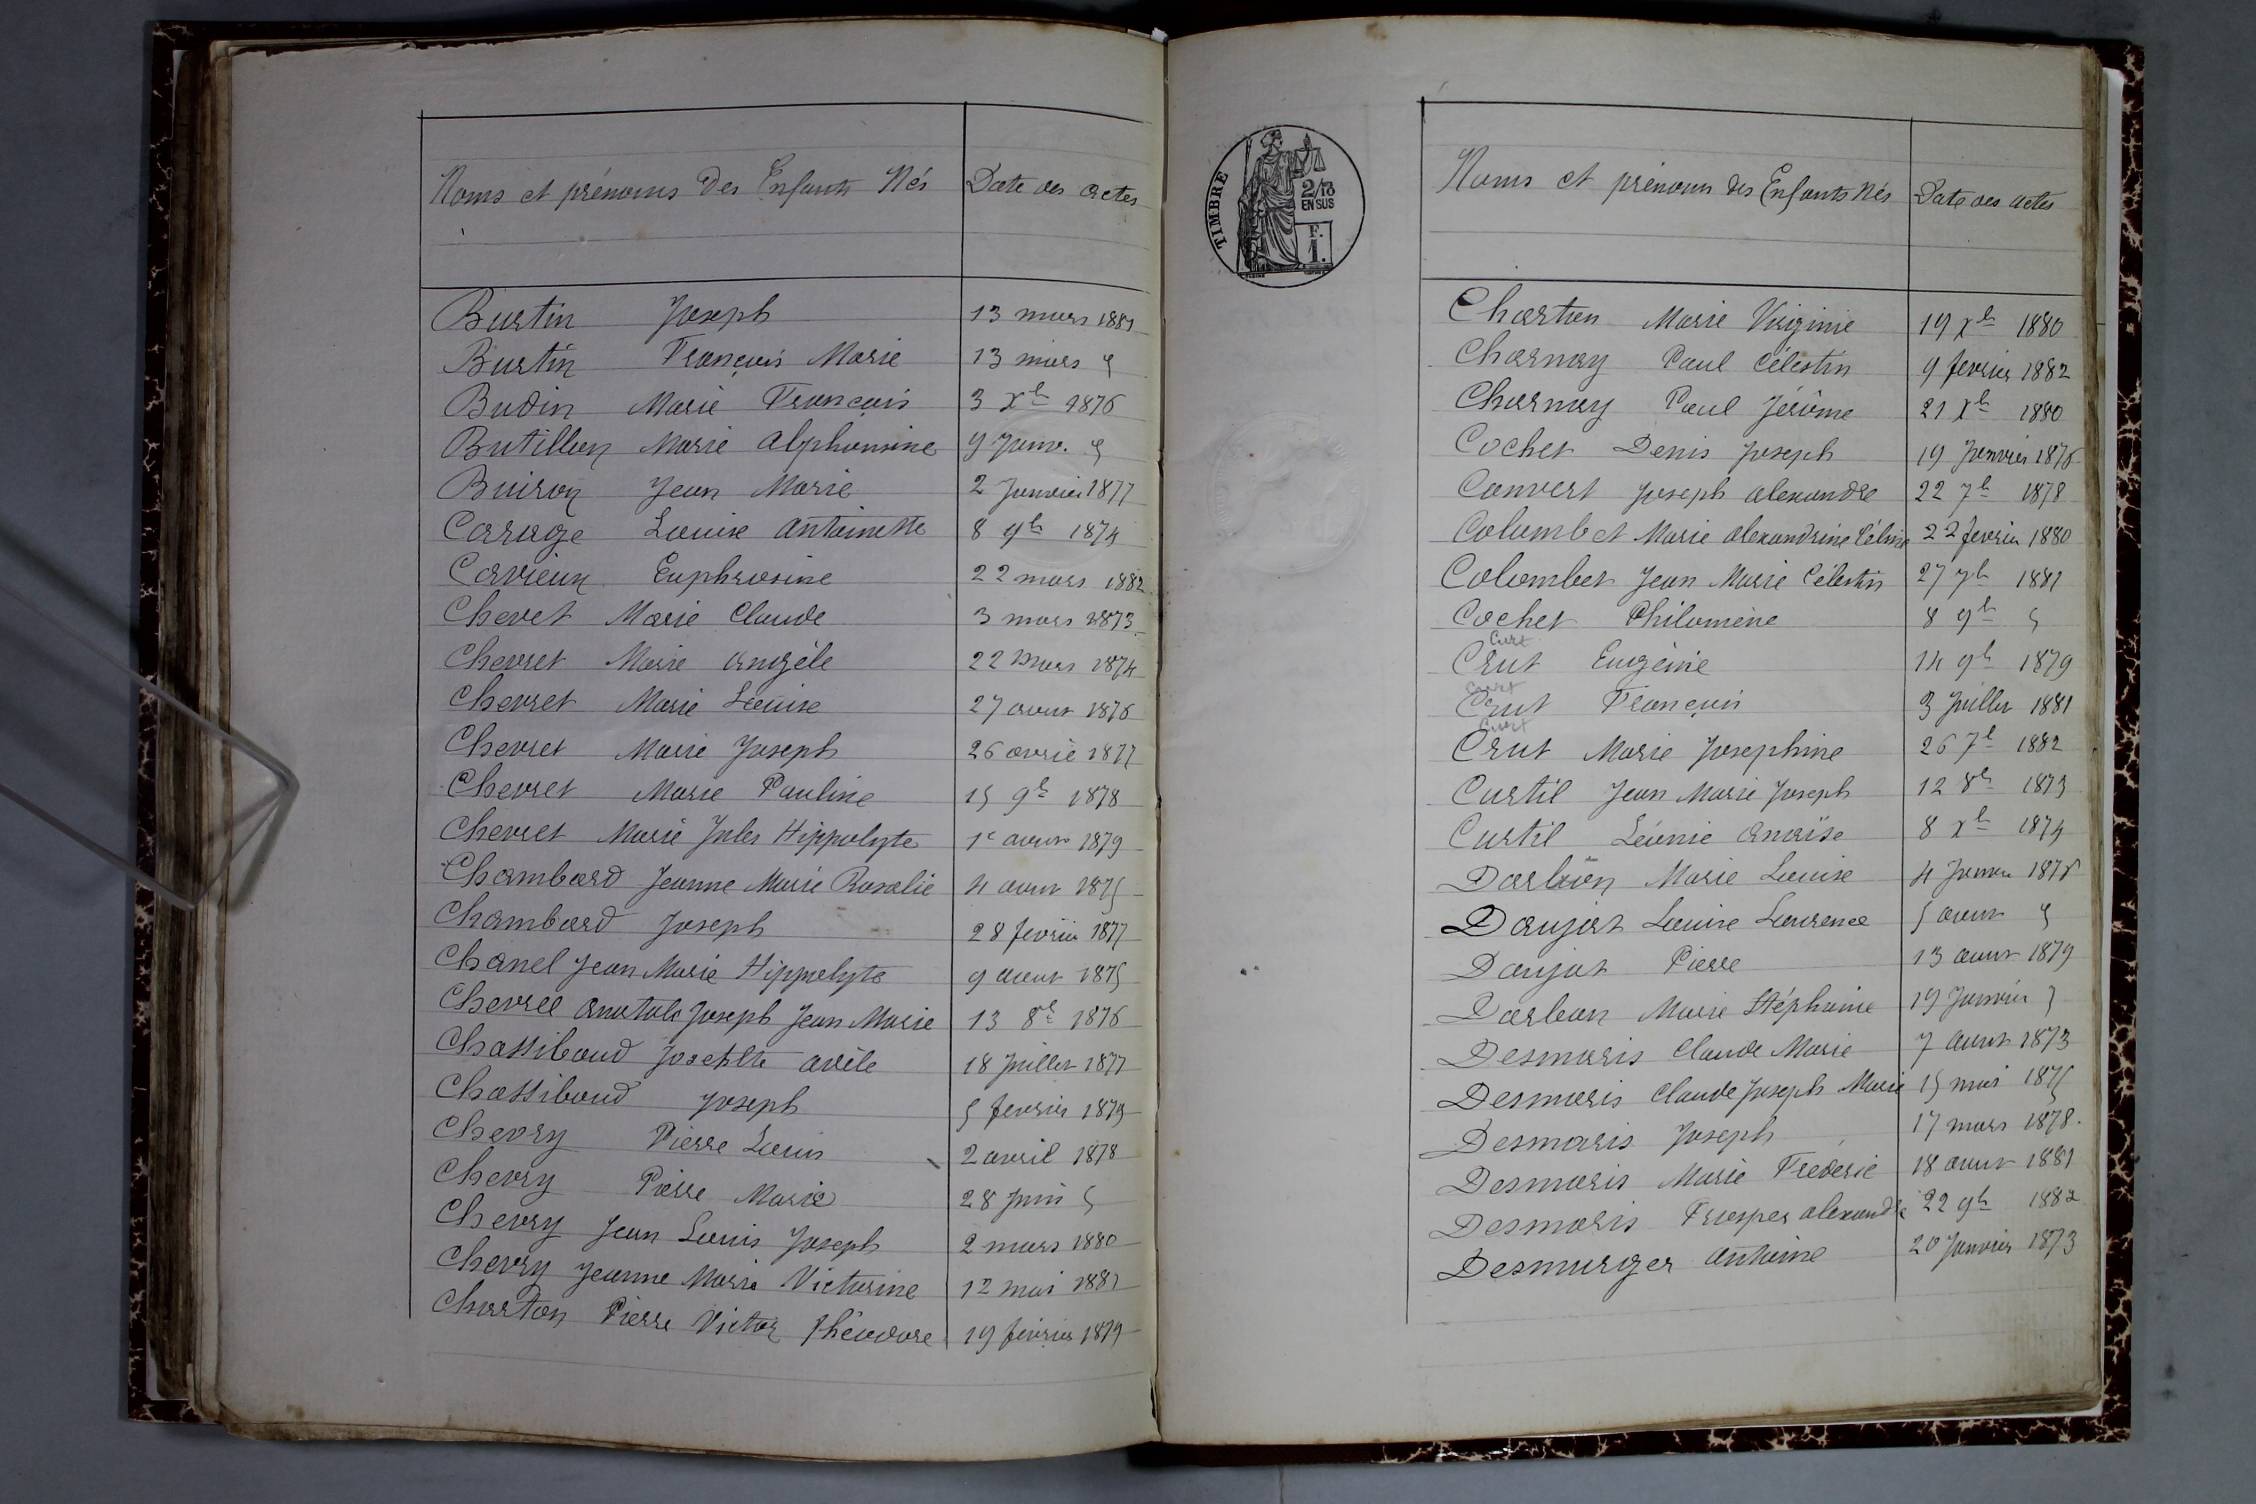 Noms et prénoms des Enfants Nés Date des actes
Burtin Joseph 13 mars 1881
Burtin François Marie 13 mars
Budin Marie François 3 Xb 1876
Butillon Marie Alphonsine 9 Janv.
Buiron Jean Marie 2 Janvier 1877
Carage Louise Antoinette 8 9b 1874
Cavieux Euphrosine 22 mars 1882
Chevret Marie Claude 3 mars 1873
Chevret Marie Angèle 22 mars 1874
Chevret Marie Louise 27 aout 1876
Chevret Marie Joseph 26 avril 1877
Chevret Marie Pauline 15 9b 1878
Chevret Marie Jules Hippolyte 1e aout 1879
Chambard Jeanne Marie Rosalie 4 aout 1875
Chambard Joseph 28 fevrier 1877
Chanel Jean Marie Hippolyte 9 aout 1875
Chevrel Anatole Joseph Jean Marie 13 8b 1876
Chassiboud Josephte Adèle 18 Juillet 1877
Chassiboud Joseph 5 fevrier 1879
Chevry Pierre Louis 2 avril 1878
Chevry Pierre Marie 28 Juin
Chevry Jean Louis Joseph 2 mars 1880
Chevry Jeanne Marie Victorine 12 mai 1881
Charton Pierre Victor Théodore 19 février 1879
TIMBRE
2/10
EN SUS
F.
1.
Noms et prénoms des Enfants Nés Date des actes
Charton Marie Virginie 19 Xb 1880
Charnay Paul Célestin 9 fevrier 1882
Charnay Paul Jérôme 21 Xb 1880
Cochet Denis Joseph 19 Janvier 1876
Convert Joseph Alexandre 22 7b 1878
Colombet Marie Alexandrine Céline 22 fevrier 1880
Colombet Jean Marie Célestin 27 7b 1881
Cochet Philomène 8 9b
Curt
Crut Eugénie 14 9b 1879
Curt
Crut François 3 Juillet 1881
Curt
Crut Marie Josephine 26 7b 1882
Curtil Jean Marie Joseph 12 8b 1873
Curtil Léonie Anaïse 8 Xb 1874
Darbon Marie Louise 4 Janvier 1876
Daujat Louise Laurence 5 aout
Daujat Pierre 13 aout 1879
Darbon Marie Stéphanie 19 Janvier
Desmaris Claude Marie 7 aout 1873
Desmaris Claude Joseph Marie 15 mai 1875
Desmaris Joseph 17 mars 1878.
Desmaris Marie Frederic 18 aout 1881
Desmaris Prosper Alexandre 22 9b 1882
Desmurger Antoine 20 Janvier 1873